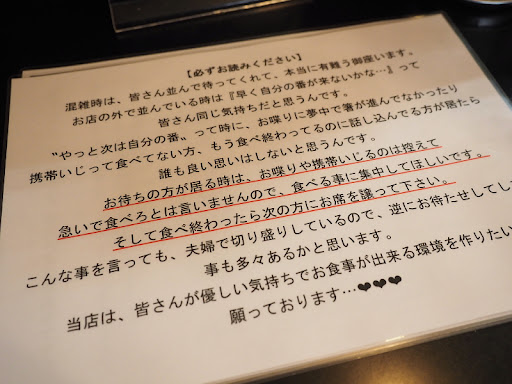 【必ずお読みください】
混雑時は、皆さん並んで待ってくれて、本当に有難う御座います。
お店の外で並んでいる時は『早く自分の番が来ないかな…』って
皆さん同じ気持ちだと思うんです。
〝やっと次は自分の番〟って時に、お喋りに夢中で箸が進んでなかったり
携帯いじって食べてない方、もう食べ終わってるのに話し込んでる方が居たら
誰も良い思いはしないと思うんです。
お待ちの方が居る時は、お喋りや携帯いじるのは控えて
急いで食べろとは言いませんので、食べる事に集中してほしいです。
そして食べ終わったら次の方にお席を譲って下さい。
こんな事を言っても、夫婦で切り盛りしているので、逆にお待たせしてし
事も多々あるかと思います。
当店は、皆さんが優しい気持ちでお食事が出来る環境を作りたい
願っております…❤❤❤